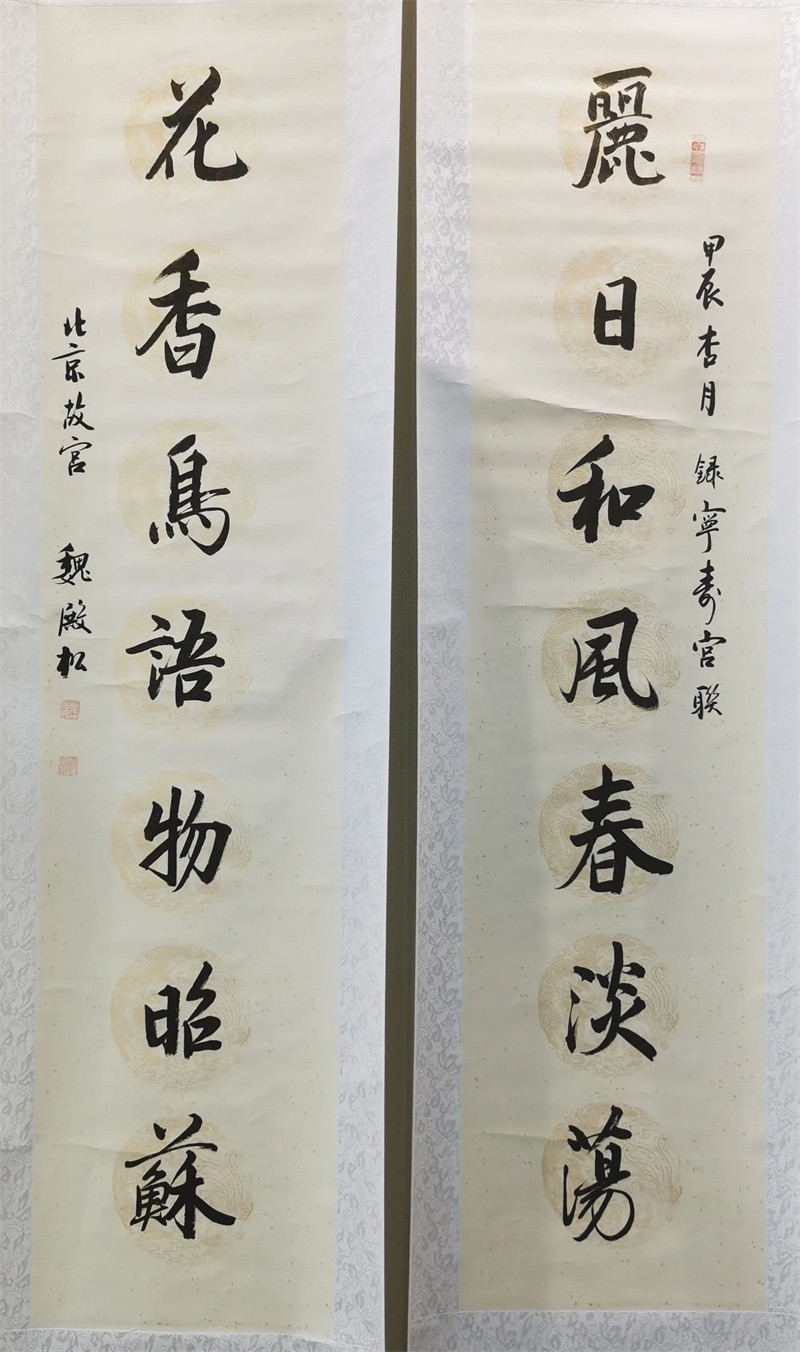 麗日和風春淡蕩
甲辰杏月 録寧壽宮聯
花香鳥語物昭蘇
北京故宮 魏殿松